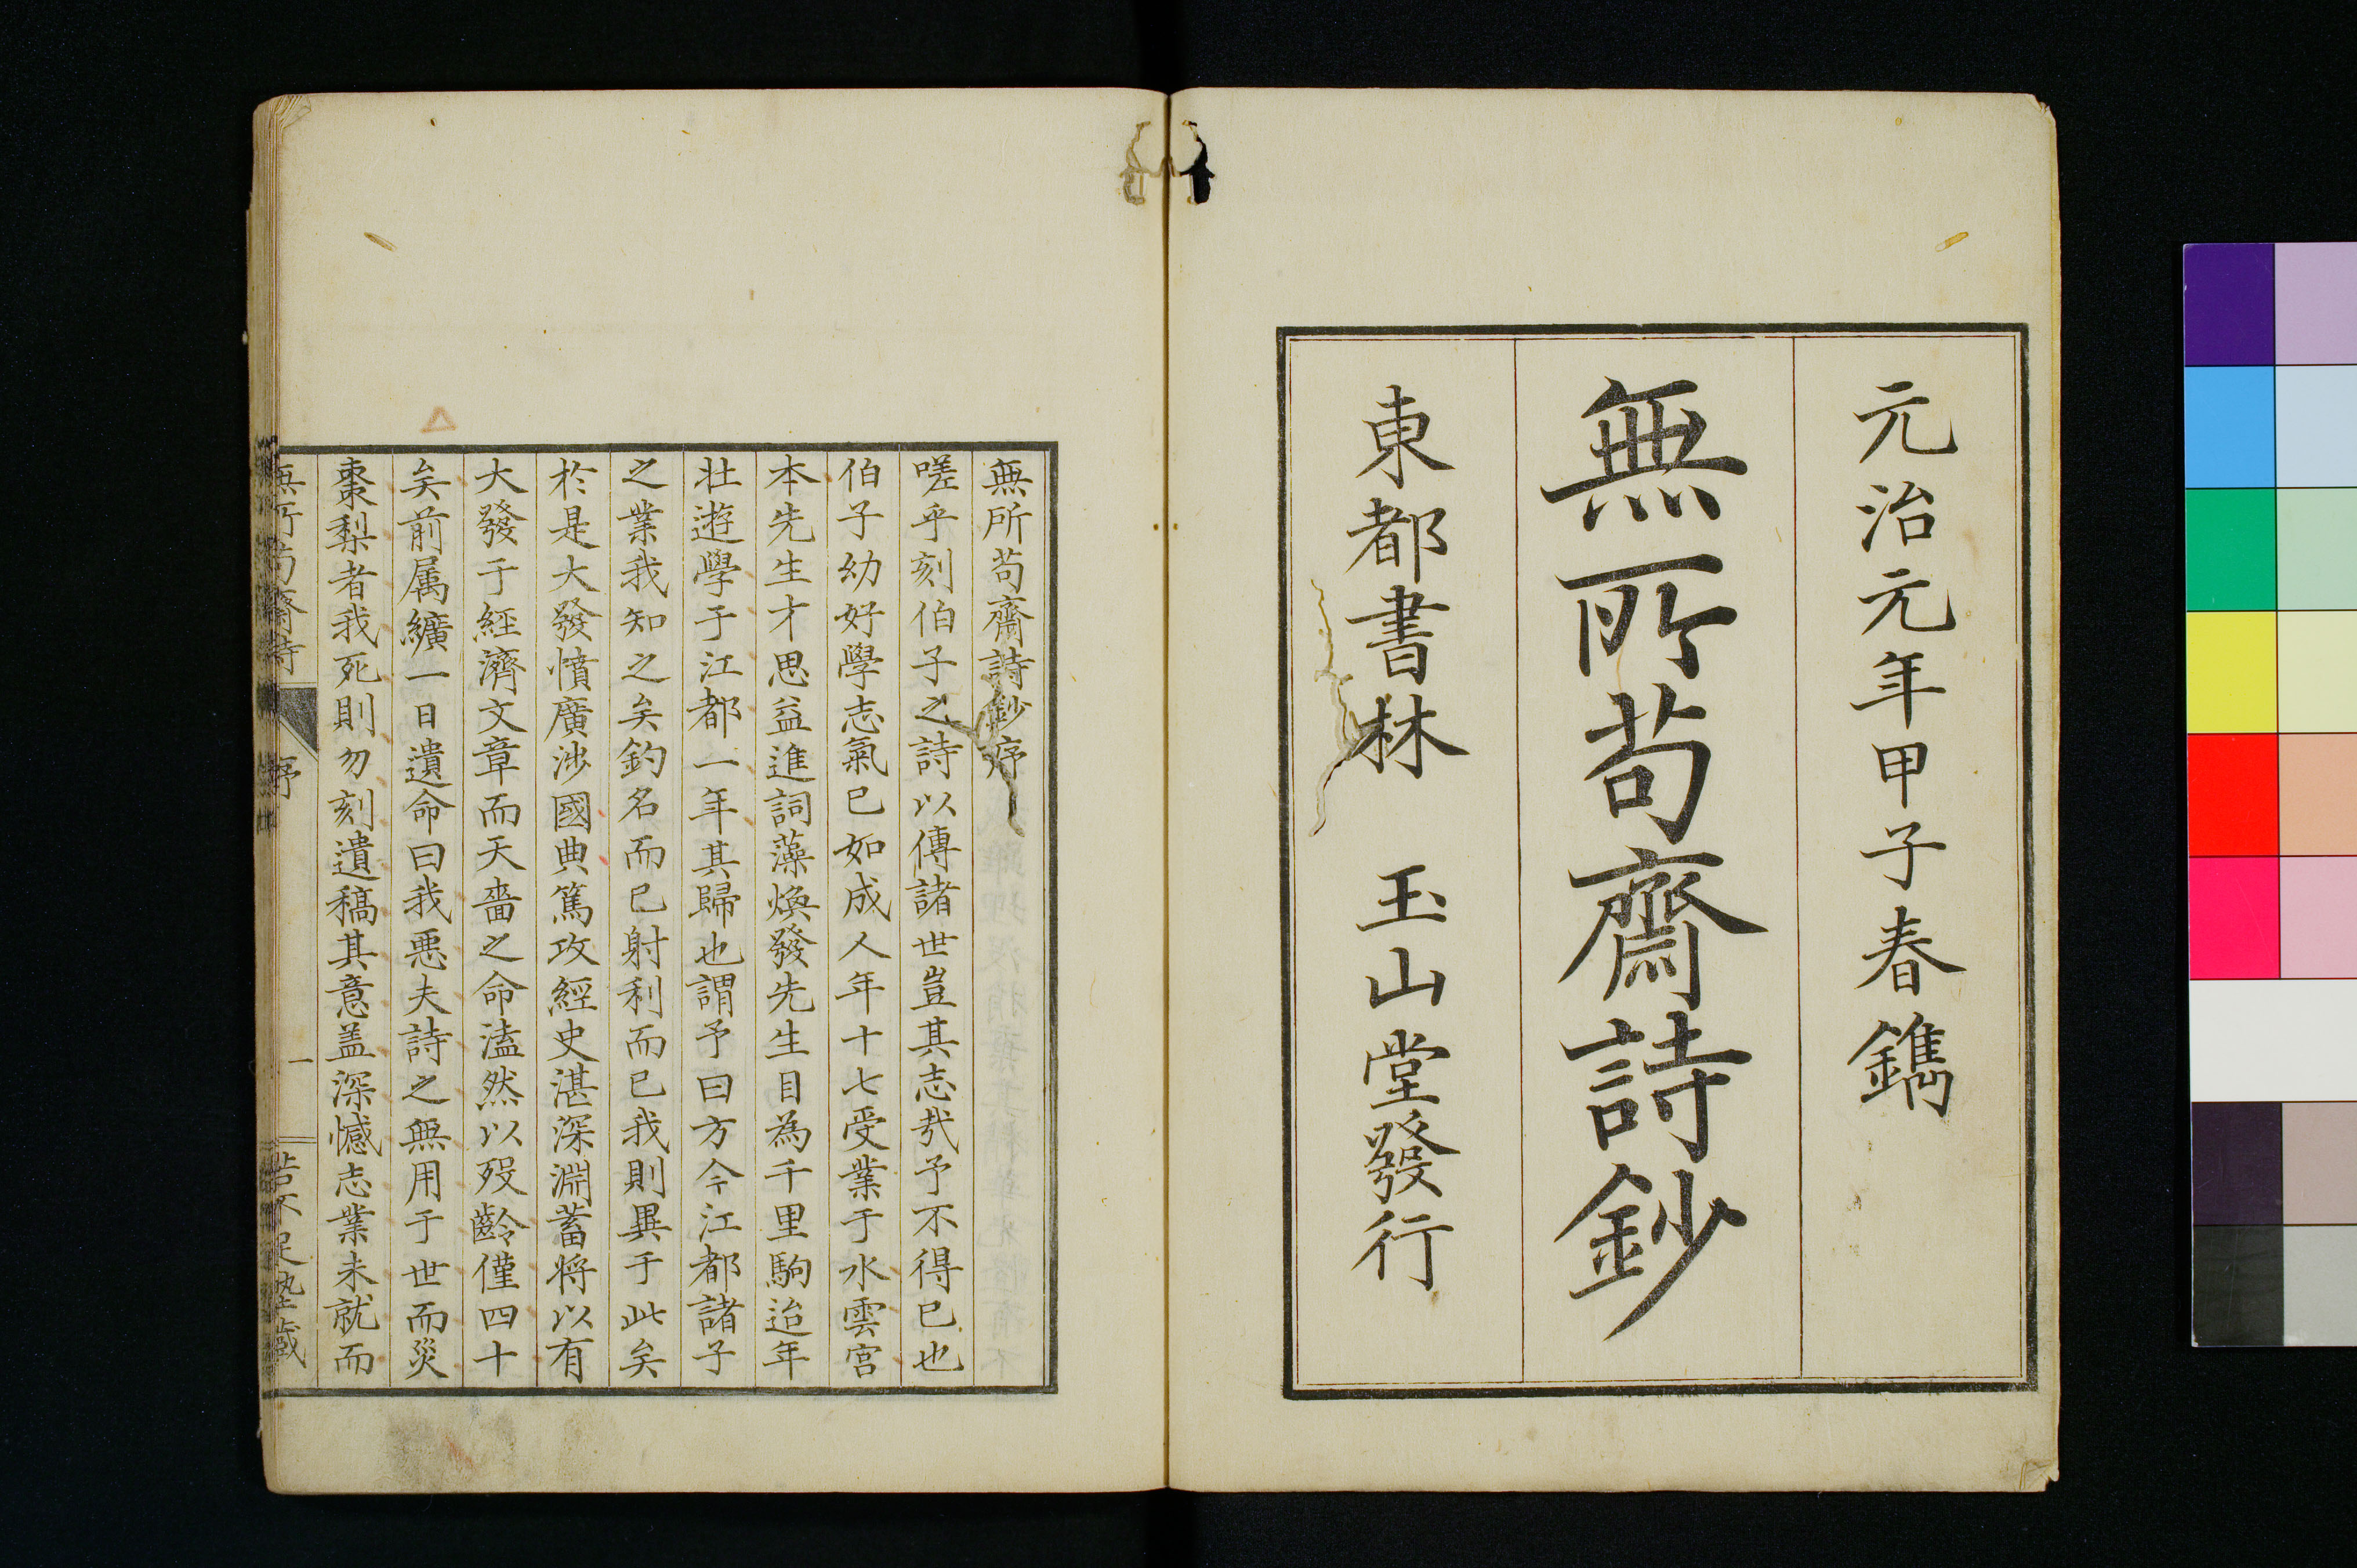 元治元年甲子春鐫
無所苟齋詩鈔
東都書林　玉山堂發行
無所苟齋詩鈔序
嗟乎刻伯子之詩以傳諸世豈其志哉予不得已也
伯子幼好學志氣已如成人年十七受業于水雲宮
本先生才思益進詞藻煥發先生目為千里駒迨年
壮遊學于江都一年其歸也謂予曰方今江都諸子
之業我知之矣釣名而已射利而已我則異于此矣
於是大發憤廣渉國典篤攻經史湛深淵蓄将以有
大發于經濟文章而天嗇之命溘然以歿齡僅四十
矣前属纊一日遺命曰我悪夫詩之無用于世而災
棗梨者我死則勿刻遺稿其意盖深憾志業未就而
無所苟齋詩
序
一
塾藏